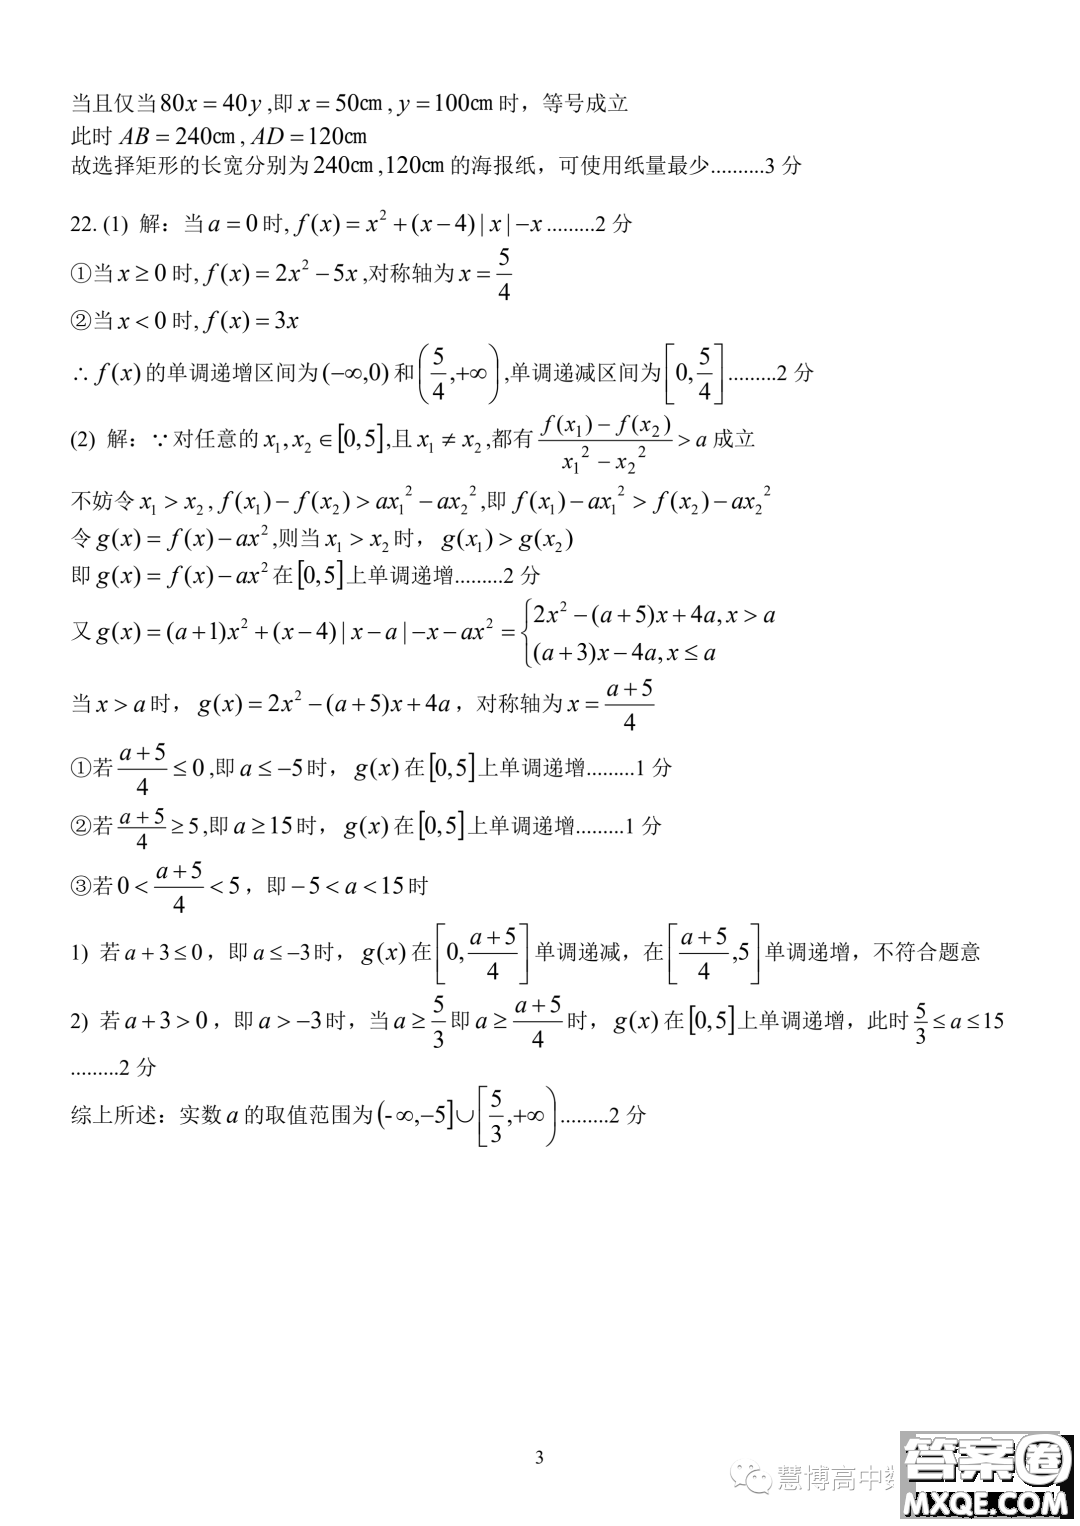 当且仅当80x = 40y ,即 x = 50cm , y = 100cm 时，等号成立
此时 AB = 240cm , AD = 120cm
故选择矩形的长宽分别为 240cm ,120cm 的海报纸，可使用纸量最少..........3 分
22. (1) 解：当 a = 0 时, f(x) = x² + (x − 4) | x | −x .........2 分
①当 x ≥ 0 时, f(x) = 2x² − 5x ,对称轴为 x = 5/4
②当 x < 0 时, f(x) = 3x
∴ f(x) 的单调递增区间为 (−∞,0) 和 (5/4,+∞) ,单调递减区间为 [0, 5/4] .........2 分
(2) 解：∵ 对任意的 x₁, x₂ ∈ [0,5],且 x₁ ≠ x₂ ,都有 (f(x₁) − f(x₂))/(x₁² − x₂²) > a 成立
不妨令 x₁ > x₂ , f(x₁) − f(x₂) > ax₁² − ax₂² ,即 f(x₁) − ax₁² > f(x₂) − ax₂²
令 g(x) = f(x) − ax² ,则当 x₁ > x₂ 时， g(x₁) > g(x₂)
即 g(x) = f(x) − ax² 在 [0,5] 上单调递增.........2 分
又 g(x) = (a +1)x² + (x − 4) | x − a | −x − ax² = { 2x² − (a + 5)x + 4a, x > a
(a + 3)x − 4a, x ≤ a
当 x > a 时， g(x) = 2x² − (a + 5)x + 4a ，对称轴为 x = (a + 5)/4
①若 (a + 5)/4 ≤ 0 ,即 a ≤ −5 时， g(x) 在 [0,5] 上单调递增.........1 分
②若 (a + 5)/4 ≥ 5 ,即 a ≥ 15 时， g(x) 在 [0,5] 上单调递增.........1 分
③若 0 < (a + 5)/4 < 5 ，即 − 5 < a < 15 时
1) 若 a + 3 ≤ 0 ，即 a ≤ −3 时， g(x) 在 [0, (a + 5)/4] 单调递减，在 [(a + 5)/4 ,5] 单调递增，不符合题意
2) 若 a + 3 > 0 ，即 a > −3 时，当 a ≥ 5/3 即 a ≥ (a + 5)/4 时， g(x) 在 [0,5] 上单调递增，此时 5/3 ≤ a ≤ 15
.........2 分
综上所述：实数 a 的取值范围为 (- ∞,−5] ∪ [5/3 ,+∞) .........2 分
3
慧博高中数
答案圈
MXQE.COM